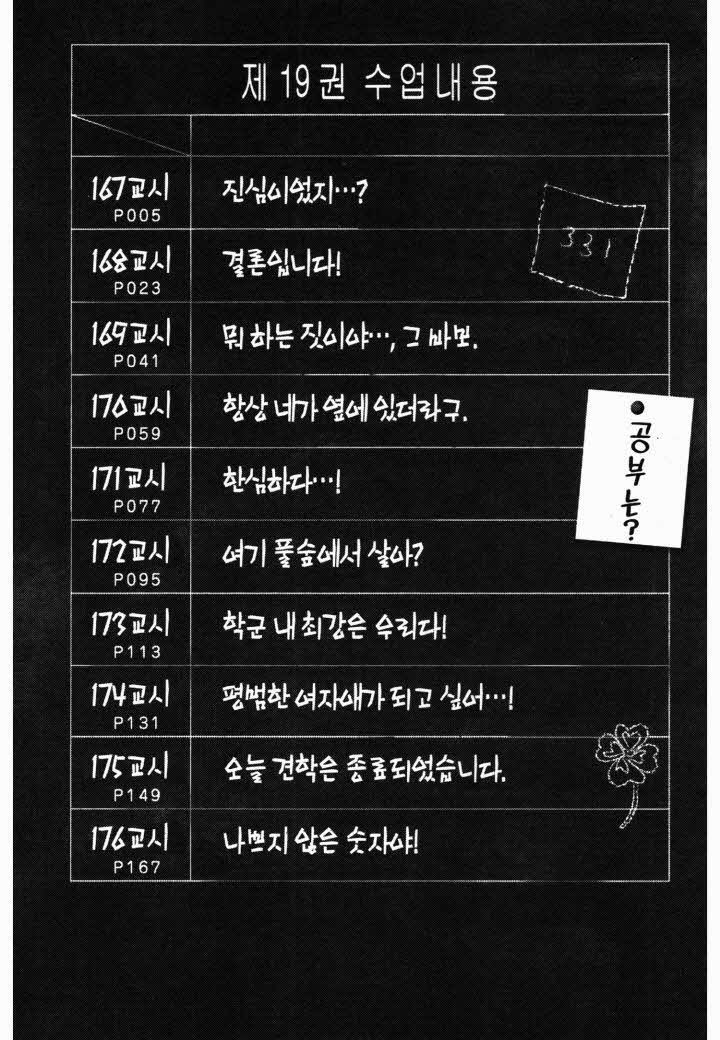 제 19권 수업내용
167교시
P005
진심이었지…?
168교시
P023
결론입니다!
331
169교시
P041
뭐 하는 짓이야…, 그 바보.
170교시
P059
항상 네가 옆에 있더라구.
공부는?
171교시
P077
한심하다…!
172교시
P095
여기 풀숲에서 살아?
173교시
P113
학군 내 최강은 우리다!
174교시
P131
평범한 여자애가 되고 싶어…!
175교시
P149
오늘 견학은 종료되었습니다.
176교시
P167
나쁘지 않은 숫자야!